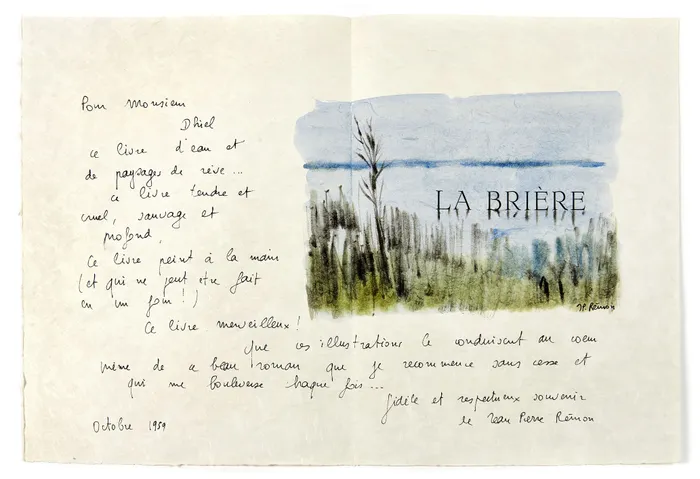 Pour Monsieur
Dhiel
ce livre d'eau et
de paysages de rêve...
ce livre tendre et
cruel, sauvage et
profond,
Ce livre peint à la main
(et qui ne peut etre fait
en un jour!)
Ce livre merveilleux!
Que ces illustrations le conduisent au coeur
même de ce beau roman que je recommence sans cesse et
qui me bouleverse chaque fois...
fidèle et respectueux souvenir
de Jean Pierre Rémon
Octobre 1959
LA BRIÈRE
JP. Rémon